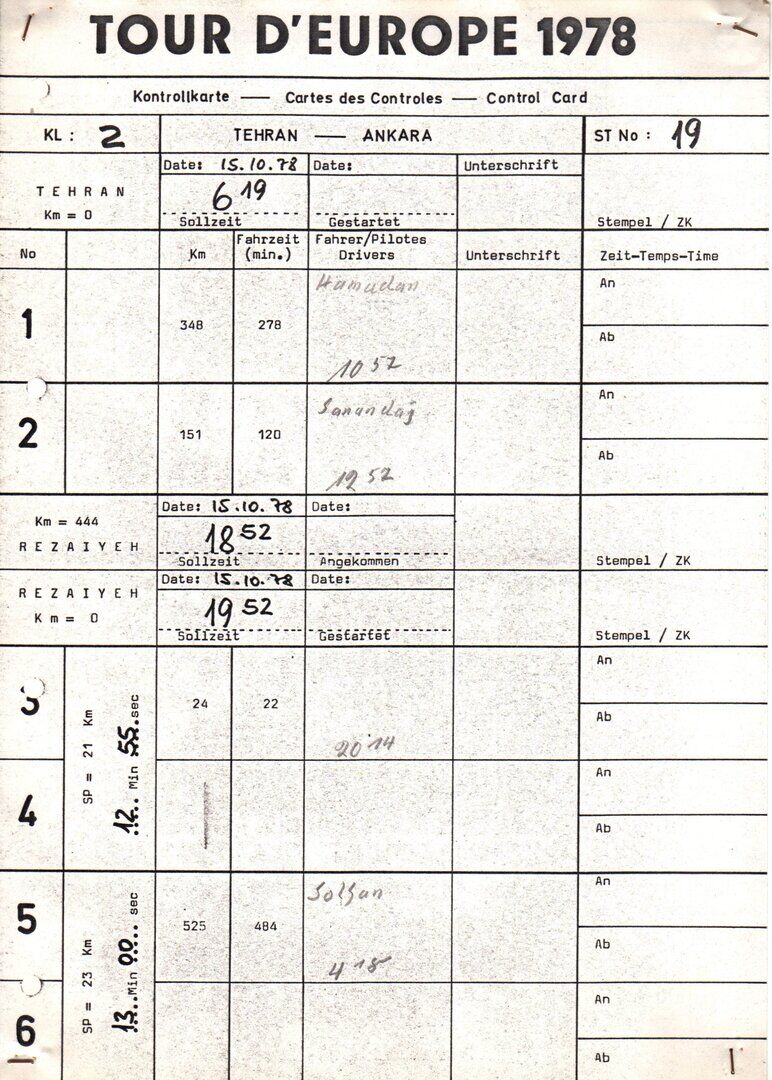 TOUR D'EUROPE 1978
Kontrollkarte — Cartes des Controles — Control Card
KL : 2 TEHRAN — ANKARA ST No : 19
TEHRAN Km = 0 Date: 15.10.78 Date: Unterschrift
6 19
Sollzeit Gestartet Stempel / ZK
No Km Fahrzeit (min.) Fahrer/Pilotes Drivers Unterschrift Zeit-Temps-Time
1 348 278 Hamadan An
10 52 Ab
2 151 120 Sanandaj An
12 52 Ab
Km = 444 REZAIYEH Date: 15.10.78 Date:
18 52
Sollzeit Angekommen Stempel / ZK
REZAIYEH Km = 0 Date: 15.10.78 Date:
19 52
Sollzeit Gestartet Stempel / ZK
3 SP = 21 Km 12 Min 55 sec 24 22 An
20 14 Ab
4 An
Ab
5 SP = 23 Km 13 Min 00 sec 525 484 An
4 18 Ab
6 An
Ab